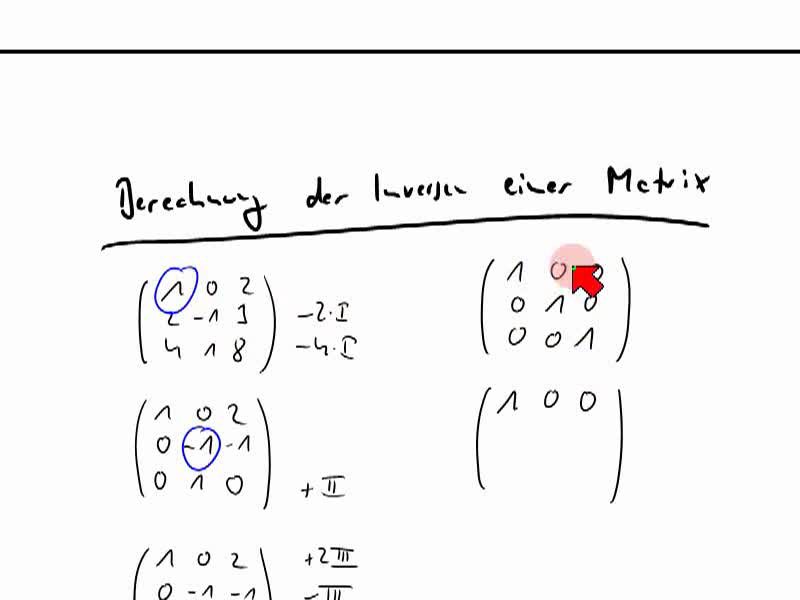 Berechnung der Inversen einer Matrix
1 0 2
2 -1 3 -2·I
4 1 8 -4·I
1 0
0 1 0
0 0 1
1 0 2
0 -1 -1
0 1 0 + II
1 0 0
1 0 2 +2III
0 -1 -1 -III